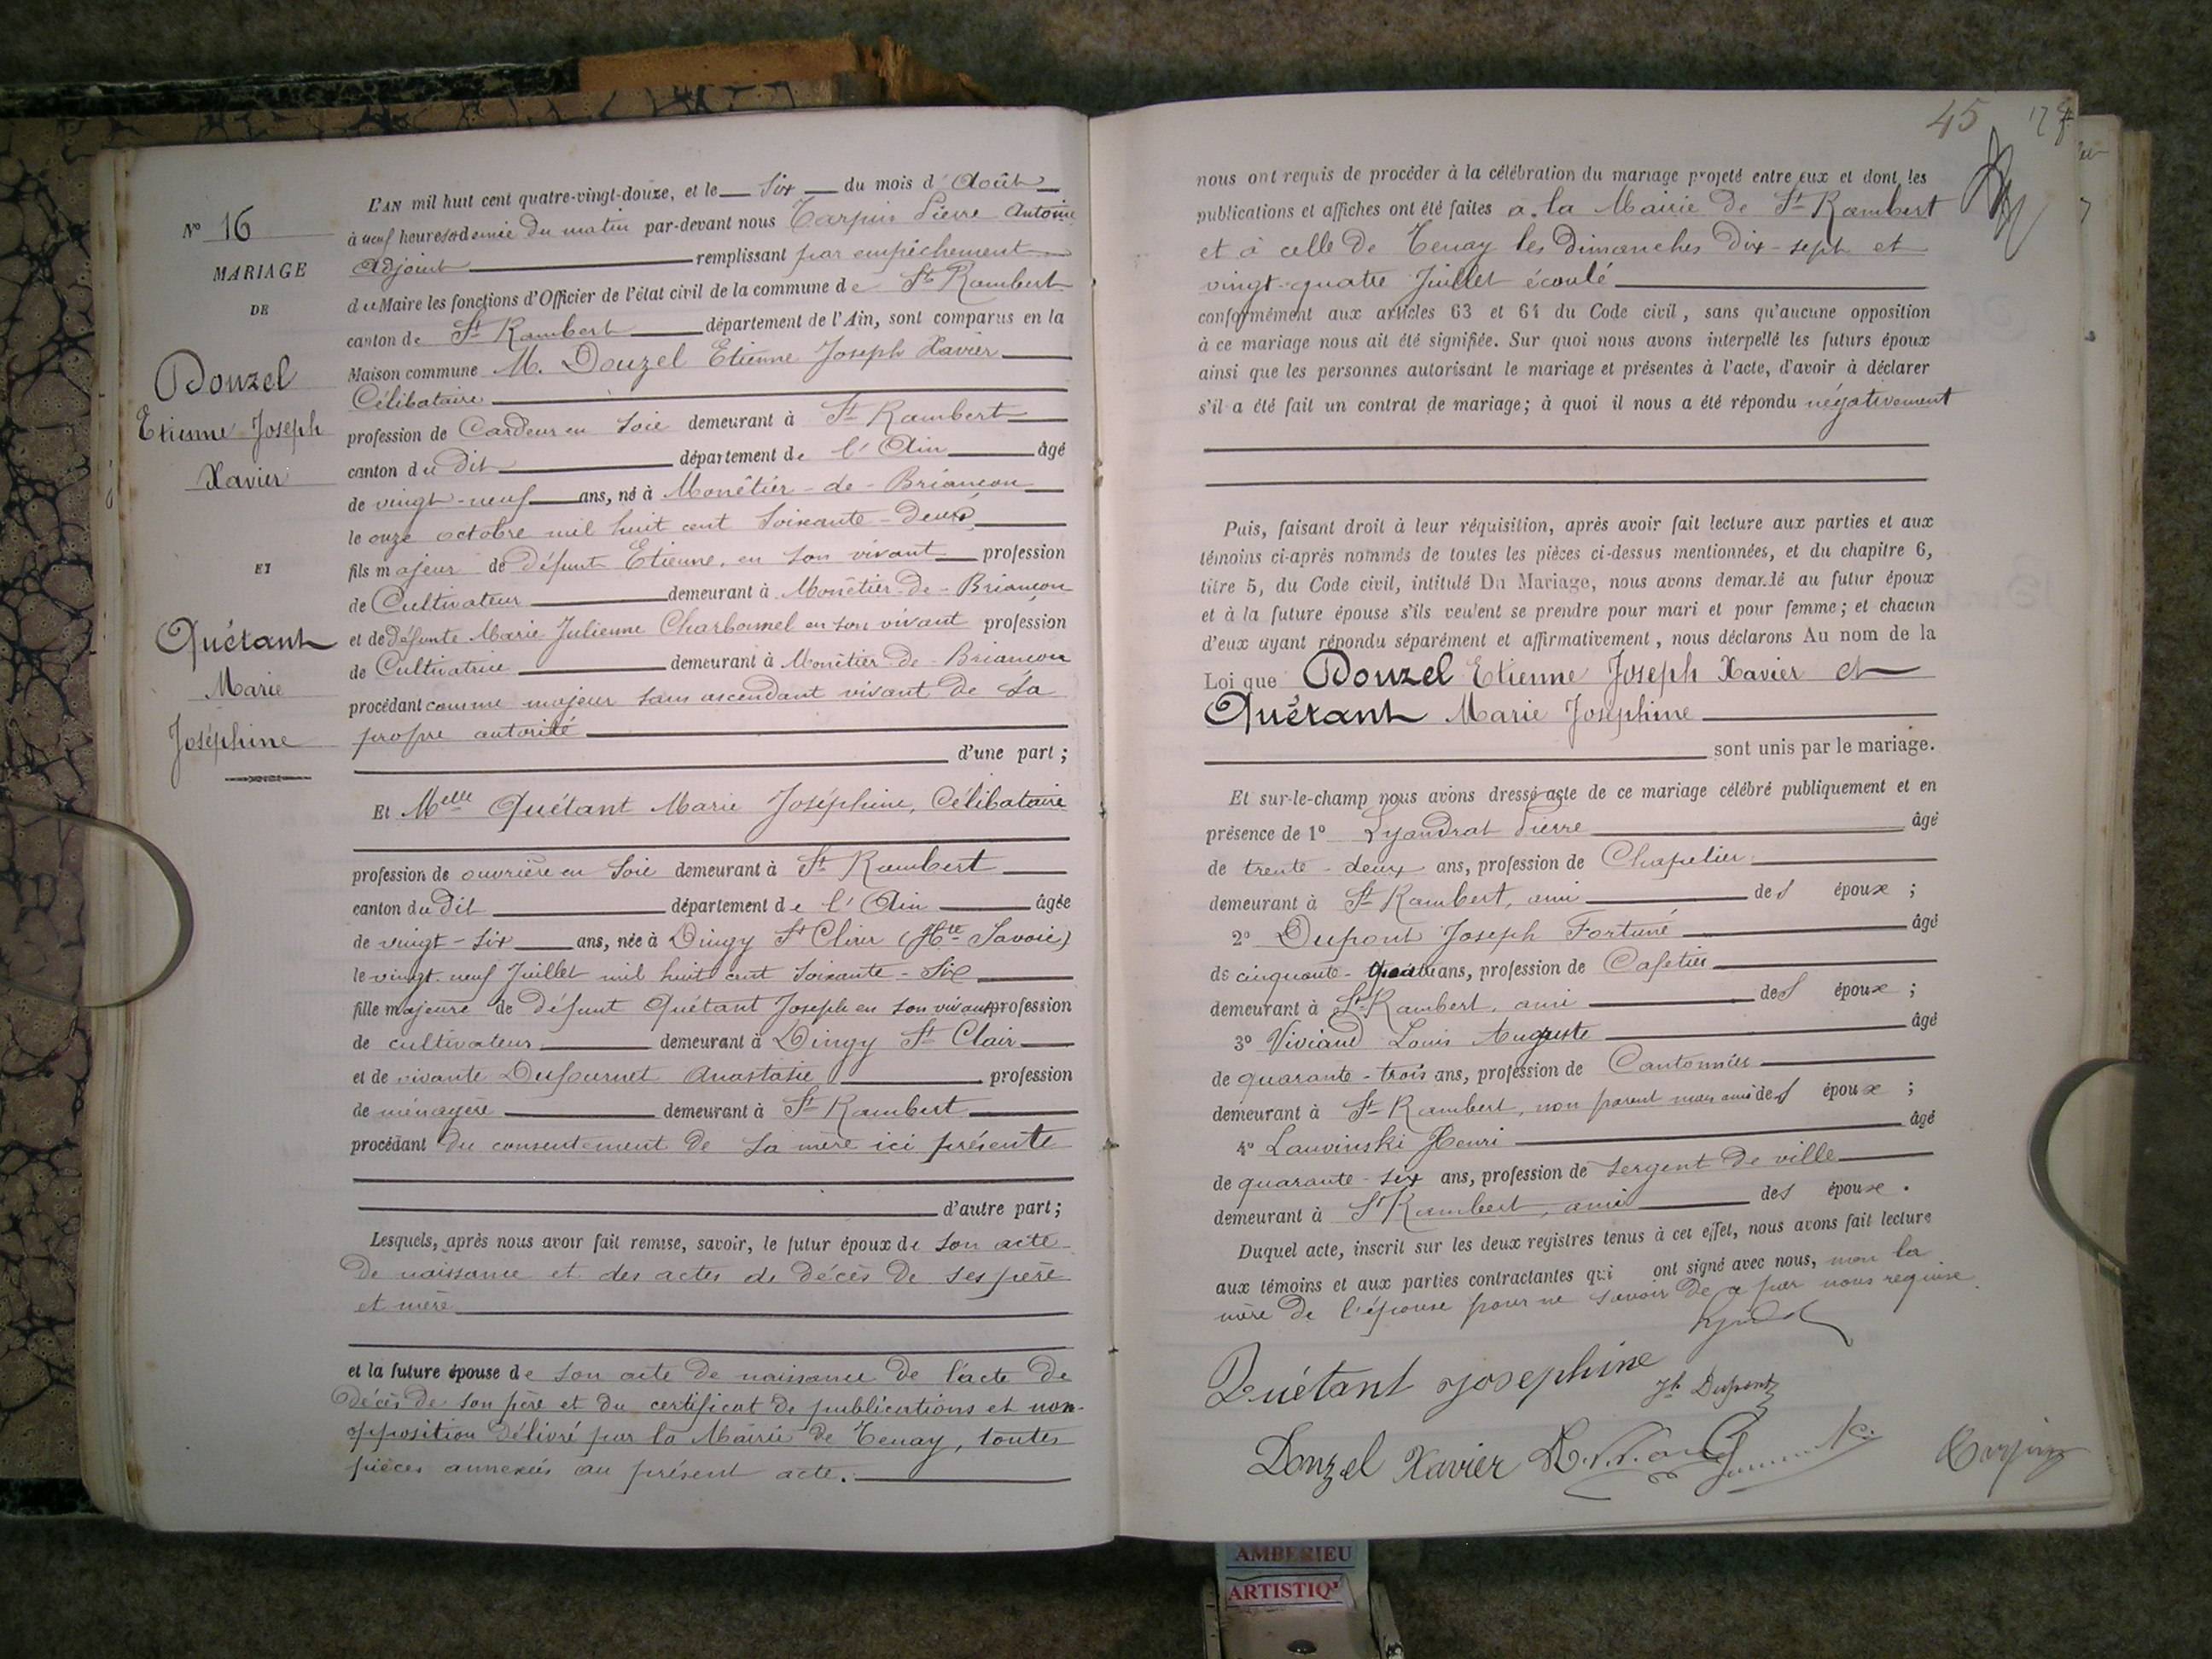 N° 16
MARIAGE
DE
Donzel
Etienne Joseph
Xavier
ET
Quétant
Marie
Joséphine
L'AN mil huit cent quatre-vingt-douze, et le six du mois d'Août
à neuf heures et demie du matin par-devant nous Tarpin Pierre Antoine
Adjoint remplissant par empêchement
du Maire les fonctions d'Officier de l'état civil de la commune de St Rambert
canton de St Rambert département de l'Ain, sont comparus en la
Maison commune M. Donzel Etienne Joseph Xavier
Célibataire
profession de Cardeur en soie demeurant à St Rambert
canton du dit département de l'Ain âgé
de vingt-neuf ans, né à Monêtier-de-Briançon
le onze octobre mil huit cent soixante-deux
fils majeur de défunt Etienne, en son vivant profession
de Cultivateur demeurant à Monêtier-de-Briançon
et de défunte Marie Julienne Charbonnel en son vivant profession
de Cultivatrice demeurant à Monêtier-de-Briançon
procédant comme majeur sans ascendant vivant de sa
propre autorité
d'une part ;
Et Melle Quétant Marie Joséphine, Célibataire
profession de ouvrière en soie demeurant à St Rambert
canton du dit département de l'Ain âgée
de vingt-six ans, née à Dingy St Clair (Hte Savoie)
le vingt-neuf Juillet mil huit cent soixante-six
fille majeure de défunt Quétant Joseph en son vivant profession
de cultivateur demeurant à Dingy St Clair
et de vivante Dufournet Anastasie profession
de ménagère demeurant à St Rambert
procédant du consentement de sa mère ici présente
d'autre part ;
Lesquels, après nous avoir fait remise, savoir, le futur époux de son acte
de naissance et des actes de décès de ses père
et mère
et la future épouse de son acte de naissance de l'acte de
décès de son père et du certificat de publications et non-
opposition délivré par la Mairie de Tenay, toutes
pièces annexées au présent acte.
45
nous ont requis de procéder à la célébration du mariage projeté entre eux et dont les
publications et affiches ont été faites à la Mairie de St Rambert
et à celle de Tenay les dimanches dix-sept et
vingt-quatre Juillet écoulé
conformément aux articles 63 et 64 du Code civil, sans qu'aucune opposition
à ce mariage nous ait été signifiée. Sur quoi nous avons interpellé les futurs époux
ainsi que les personnes autorisant le mariage et présentes à l'acte, d'avoir à déclarer
s'il a été fait un contrat de mariage ; à quoi il nous a été répondu négativement
Puis, faisant droit à leur réquisition, après avoir fait lecture aux parties et aux
témoins ci-après nommés de toutes les pièces ci-dessus mentionnées, et du chapitre 6,
titre 5, du Code civil, intitulé Du Mariage, nous avons demandé au futur époux
et à la future épouse s'ils veulent se prendre pour mari et pour femme ; et chacun
d'eux ayant répondu séparément et affirmativement, nous déclarons Au nom de la
Loi que Donzel Etienne Joseph Xavier et
Quétant Marie Joséphine
sont unis par le mariage.
Et sur-le-champ nous avons dressé acte de ce mariage célébré publiquement et en
présence de 1° Lyandrat Pierre âgé
de trente-deux ans, profession de Chapelier
demeurant à St Rambert, ami des époux ;
2° Dupont Joseph Fortuné âgé
de cinquante-quatre ans, profession de Cafetier
demeurant à St Rambert, ami des époux ;
3° Viviand Louis Auguste âgé
de quarante-trois ans, profession de Cantonnier
demeurant à St Rambert, non parent mais ami des époux ;
4° Lauvinski Henri âgé
de quarante-six ans, profession de sergent de ville
demeurant à St Rambert, ami des époux.
Duquel acte, inscrit sur les deux registres tenus à cet effet, nous avons fait lecture
aux témoins et aux parties contractantes qui ont signé avec nous, non la
mère de l'épouse pour ne savoir de ce par nous requise
Quétant Josephine
Jh Dupont
Donzel Xavier
Tarpin
AMBERIEU
ARTISTIQ